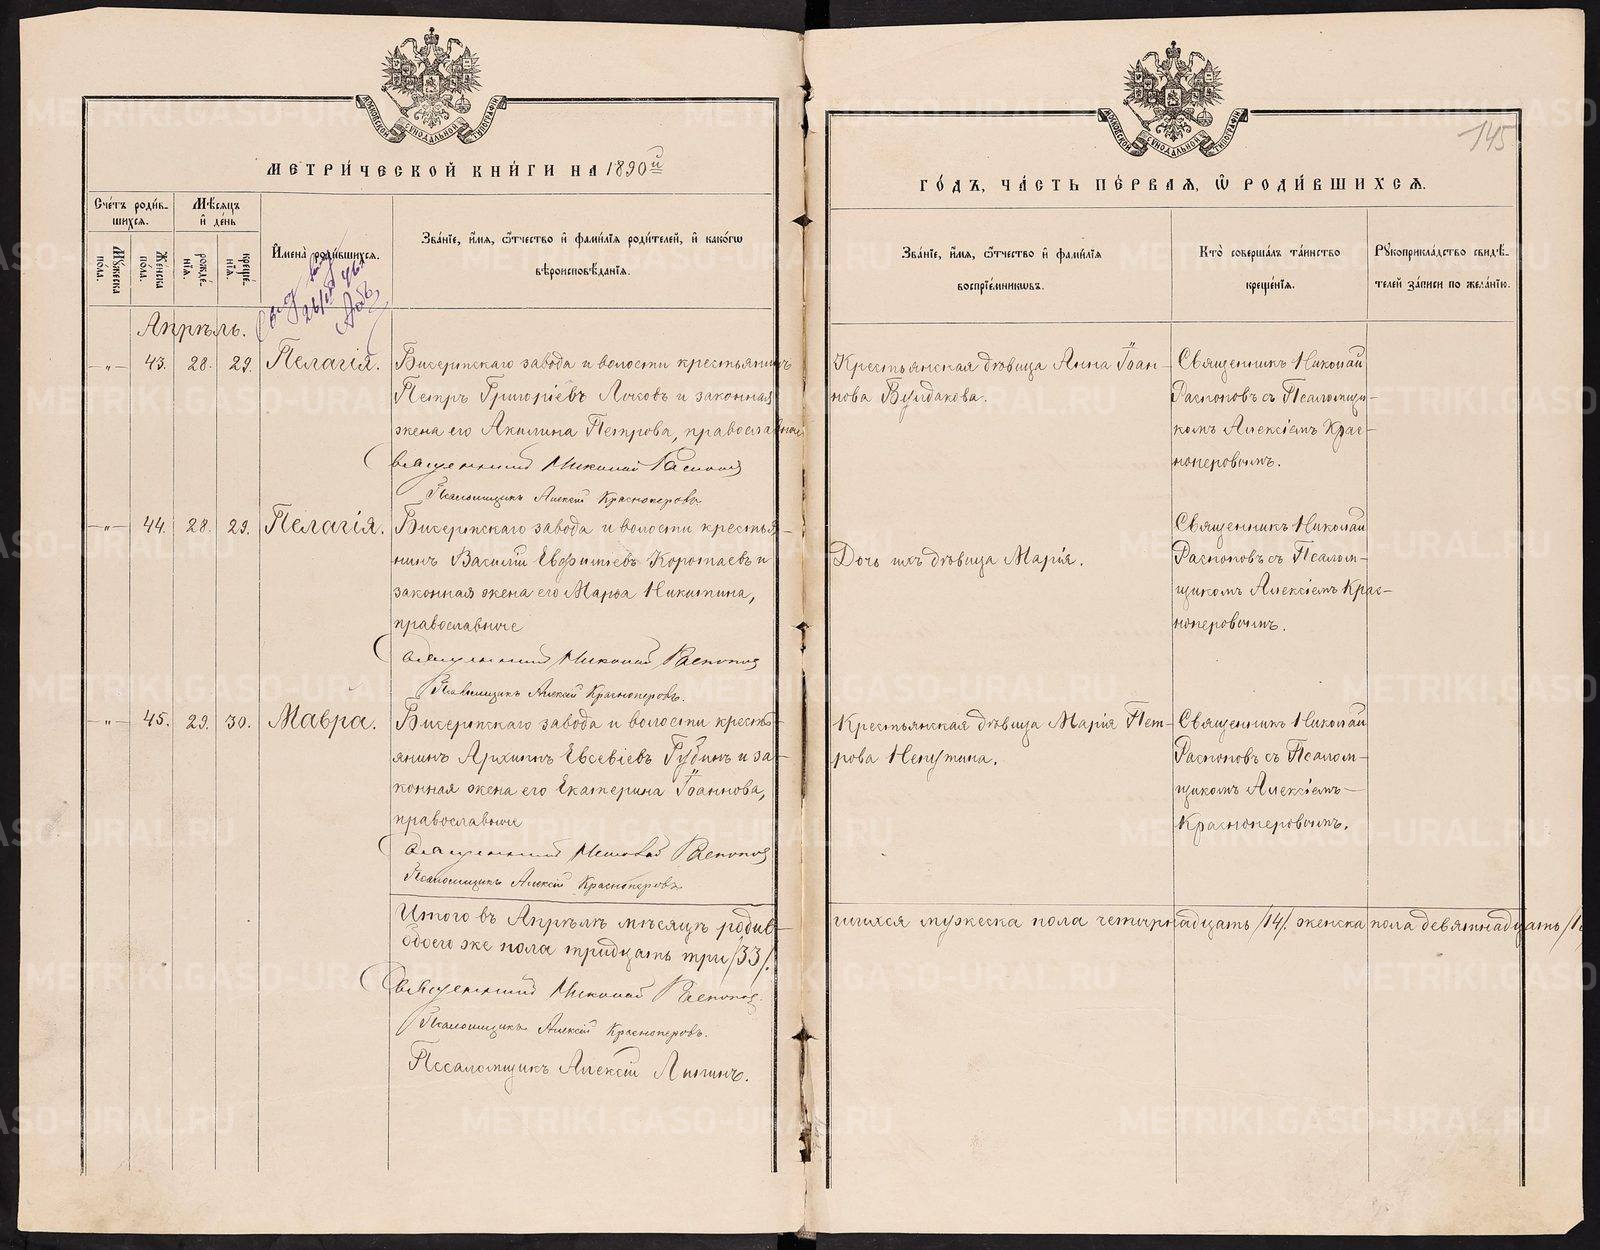 МОСКОВСКОЙ СѴНОДАЛЬНОЙ ТИПОГРАФІИ
МЕТРИ́ЧЕСКОЙ КНИ́ГИ НА 1890й
Сче́тъ роди́в-
шихся.
Мѣ́сяцъ
и҆ де́нь
Мꙋжеска
по́ла.
Же́нска
по́ла.
рожде́-
нїѧ.
креще́-
нїѧ.
И҆мена̀ роди́вшихсѧ.
Зва́нїе, и҆́мѧ, ѻ҆́тчество и҆ фами́лїѧ роди́телей, и҆ како́гѡ
вѣроисповѣ́данїѧ.
Апрѣль.
-„- 43. 28. 29. Пелагія. Бисертскаго завода и волости крестьянинъ
Петръ Григоріевъ Лоховъ и законная
жена его Акилина Петрова, православные
Священникъ Николай Распоповъ
Псаломщикъ Алексѣй Красноперовъ
-„- 44. 28. 29. Пелагія. Бисертскаго завода и волости крестья-
нинъ Василій Евфиміевъ Коротаевъ и
законная жена его Марѳа Никитина,
православные
Священникъ Николай Распоповъ
Псаломщикъ Алексѣй Красноперовъ.
-„- 45. 29. 30. Мавра. Бисертскаго завода и волости кресть-
янинъ Архиппъ Евсевіевъ Рубинъ и за-
конная жена его Екатерина Іоаннова,
православные
Священникъ Николай Распоповъ
Псаломщикъ Алексѣй Красноперовъ
Итого въ Апрѣлѣ мѣсяцѣ родив-
обоего же пола тридцать три /33/.
Священникъ Николай Распоповъ.
Псаломщикъ Алексѣй Красноперовъ.
Псаломщикъ Алексій Лыгинъ.
МОСКОВСКОЙ СѴНОДАЛЬНОЙ ТИПОГРАФІИ
145
ГО́ДЪ, ЧА́СТЬ ПЕ́РВАѦ, Ѽ РОДИ́ВШИХСѦ.
Зва́нїе, и҆́мѧ, ѻ҆́тчество и҆ фами́лїѧ
воспрїе́мникѡвъ.
Кто̀ соверша́лъ та́инство
креще́нїѧ.
Рꙋкоприкла́дство свидѣ́-
телей за́писи по жела́нїю.
Крестьянская дѣвица Анна Іоан-
нова Булдакова.
Священникъ Николай
Распоповъ съ Псаломщи-
комъ Алексіемъ Крас-
ноперовымъ.
Дочь ихъ дѣвица Марія.
Священникъ Николай
Распоповъ съ Псалом-
щикомъ Алексіемъ Крас-
ноперовымъ.
Крестьянская дѣвица Марія Пет-
рова Непутина.
Священникъ Николай
Распоповъ съ Псалом-
щикомъ Алексіемъ
Красноперовымъ.
шихся мужеска пола четырнадцать /14/. женска пола девятнадцать /1
METRIKI.GASO-URAL.RU